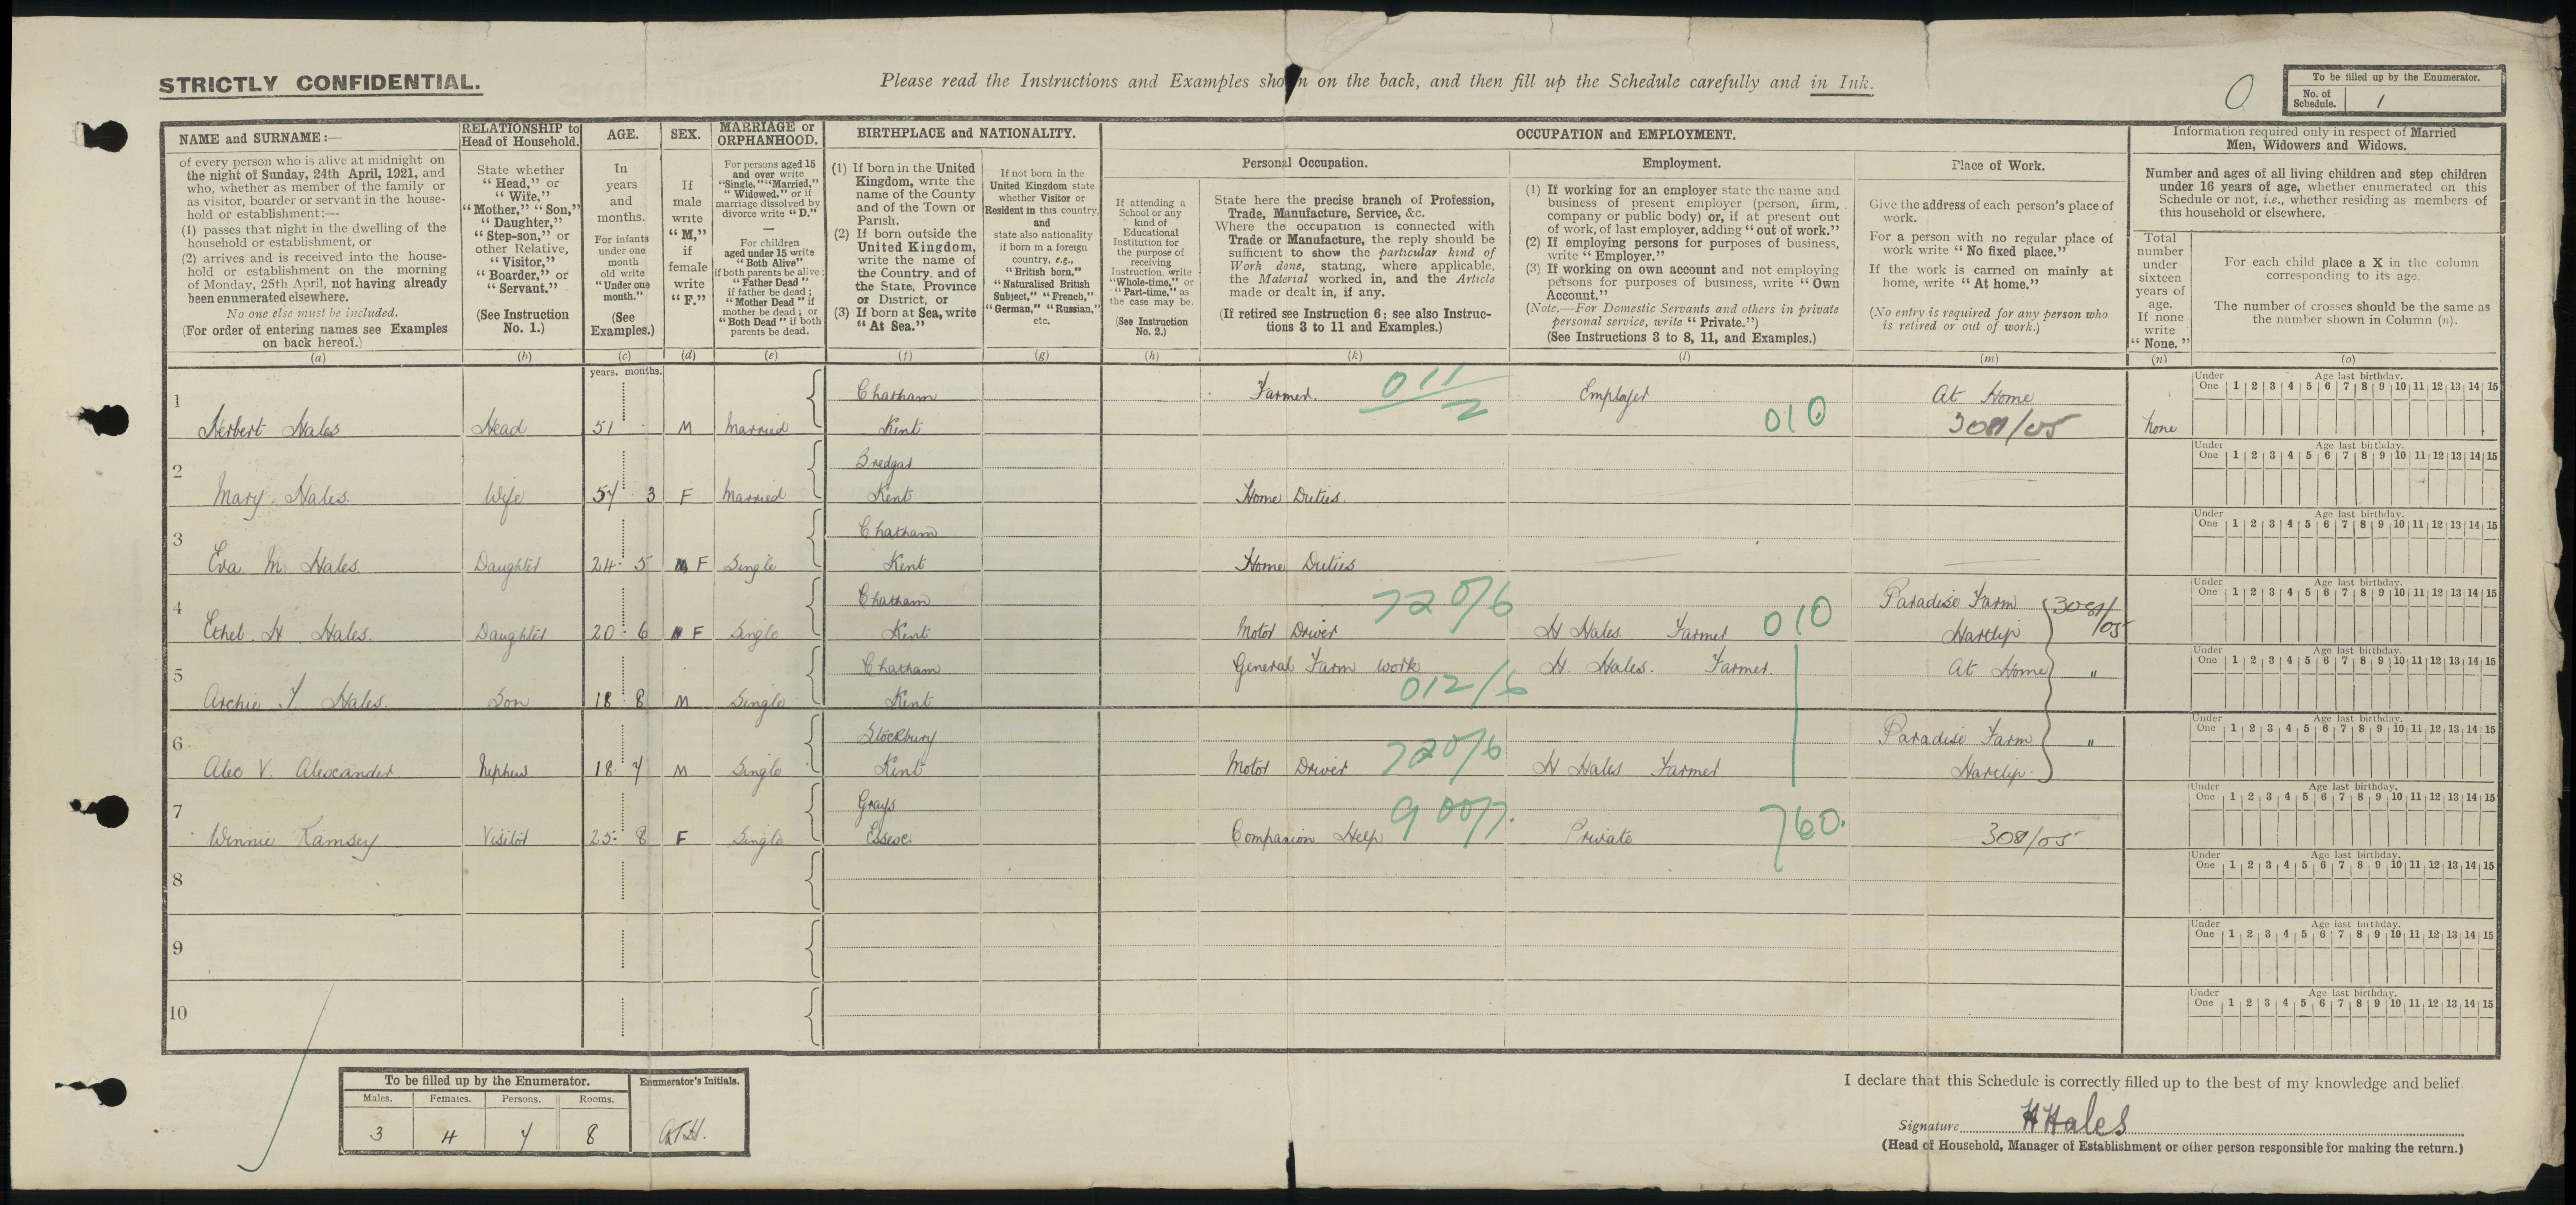 STRICTLY CONFIDENTIAL.
Please read the Instructions and Examples shown on the back, and then fill up the Schedule carefully and in Ink.
0
To be filled up by the Enumerator.
No. of Schedule. 1
NAME and SURNAME:—
of every person who is alive at midnight on
the night of Sunday, 24th April, 1921, and
who, whether as member of the family or
as visitor, boarder or servant in the house-
hold or establishment:—
(1) passes that night in the dwelling of the
household or establishment, or
(2) arrives and is received into the house-
hold or establishment on the morning
of Monday, 25th April, not having already
been enumerated elsewhere.
No one else must be included.
(For order of entering names see Examples
on back hereof.)
(a)
RELATIONSHIP to
Head of Household.
State whether
"Head," or
"Wife,"
"Mother," "Son,"
"Daughter,"
"Step-son," or
other Relative,
"Visitor,"
"Boarder," or
"Servant."
(See Instruction
No. 1.)
(b)
AGE.
In
years
and
months.
For infants
under one
month
old write
"Under one
month."
(See
Examples.)
(c)
SEX.
If
male
write
"M,"
if
female
write
"F."
(d)
MARRIAGE or
ORPHANHOOD.
For persons aged 15
and over write
"Single," "Married,"
"Widowed," or if
marriage dissolved by
divorce write "D."
—
For children
aged under 15 write
"Both Alive"
if both parents be alive;
"Father Dead"
if father be dead;
"Mother Dead" if
mother be dead; or
"Both Dead" if both
parents be dead.
(e)
BIRTHPLACE and NATIONALITY.
(1) If born in the United
Kingdom, write the
name of the County
and of the Town or
Parish.
(2) If born outside the
United Kingdom,
write the name of
the Country, and of
the State, Province
or District, or
(3) If born at Sea, write
"At Sea."
(f)
If not born in the
United Kingdom state
whether Visitor or
Resident in this country,
and
state also nationality
if born in a foreign
country, e.g.,
"British born,"
"Naturalised British
Subject," "French,"
"German," "Russian,"
etc.
(g)
OCCUPATION and EMPLOYMENT.
If attending a
School or any
kind of
Educational
Institution for
the purpose of
receiving
Instruction, write
"Whole-time," or
"Part-time," as
the case may be.
(See Instruction
No. 2.)
(h)
Personal Occupation.
State here the precise branch of Profession,
Trade, Manufacture, Service, &c.
Where the occupation is connected with
Trade or Manufacture, the reply should be
sufficient to show the particular kind of
Work done, stating, where applicable,
the Material worked in, and the Article
made or dealt in, if any.
(If retired see Instruction 6; see also Instruc-
tions 3 to 11 and Examples.)
(k)
Employment.
(1) If working for an employer state the name and
business of present employer (person, firm,
company or public body) or, if at present out
of work, of last employer, adding "out of work."
(2) If employing persons for purposes of business,
write "Employer."
(3) If working on own account and not employing
persons for purposes of business, write "Own
Account."
(Note.—For Domestic Servants and others in private
personal service, write "Private.")
(See Instructions 3 to 8, 11, and Examples.)
(l)
Place of Work.
Give the address of each person's place of
work.
For a person with no regular place of
work write "No fixed place."
If the work is carried on mainly at
home, write "At home."
(No entry is required for any person who
is retired or out of work.)
(m)
Information required only in respect of Married
Men, Widowers and Widows.
Number and ages of all living children and step children
under 16 years of age, whether enumerated on this
Schedule or not, i.e., whether residing as members of
this household or elsewhere.
Total
number
under
sixteen
years of
age.
If none
write
"None."
(n)
For each child place a X in the column
corresponding to its age.
The number of crosses should be the same as
the number shown in Column (n).
(o)
years. months.
Under One Age last birthday. 1 2 3 4 5 6 7 8 9 10 11 12 13 14 15
1 Chatham Farmer. 011/2 Employer 010 At Home
Herbert Hales Head 51 M Married Kent 3081/05 none
Under One Age last birthday. 1 2 3 4 5 6 7 8 9 10 11 12 13 14 15
2 Bredgar
Mary Hales. Wife 57 3 F Married Kent Home Duties.
Under One Age last birthday. 1 2 3 4 5 6 7 8 9 10 11 12 13 14 15
3 Chatham
Eva M Hales Daughter 24 5 F Single Kent Home Duties
Under One Age last birthday. 1 2 3 4 5 6 7 8 9 10 11 12 13 14 15
4 Chatham 720/6 010 Paradise Farm 3081/05
Ethel H Hales. Daughter 20 6 F Single Kent Motor Driver H Hales. Farmer Hartlip
Under One Age last birthday. 1 2 3 4 5 6 7 8 9 10 11 12 13 14 15
5 Chatham General Farm work H. Hales. Farmer. At Home "
Archie J. Hales. Son 18 8 M Single Kent 012/6
Under One Age last birthday. 1 2 3 4 5 6 7 8 9 10 11 12 13 14 15
6 Stockbury 720/6 Paradise Farm "
Alec V. Alexander Nephew 18 7 M Single Kent Motor Driver H Hales Farmer Hartlip.
Under One Age last birthday. 1 2 3 4 5 6 7 8 9 10 11 12 13 14 15
7 Grays 900/7. 760.
Winnie Ramsey Visitor 25 8 F Single Essex. Companion Help Private 3081/05
Under One Age last birthday. 1 2 3 4 5 6 7 8 9 10 11 12 13 14 15
8
Under One Age last birthday. 1 2 3 4 5 6 7 8 9 10 11 12 13 14 15
9
Under One Age last birthday. 1 2 3 4 5 6 7 8 9 10 11 12 13 14 15
10
To be filled up by the Enumerator.
Males. Females. Persons. Rooms.
3 4 7 8
Enumerator's Initials.
I declare that this Schedule is correctly filled up to the best of my knowledge and belief.
Signature H Hales
(Head of Household, Manager of Establishment or other person responsible for making the return.)